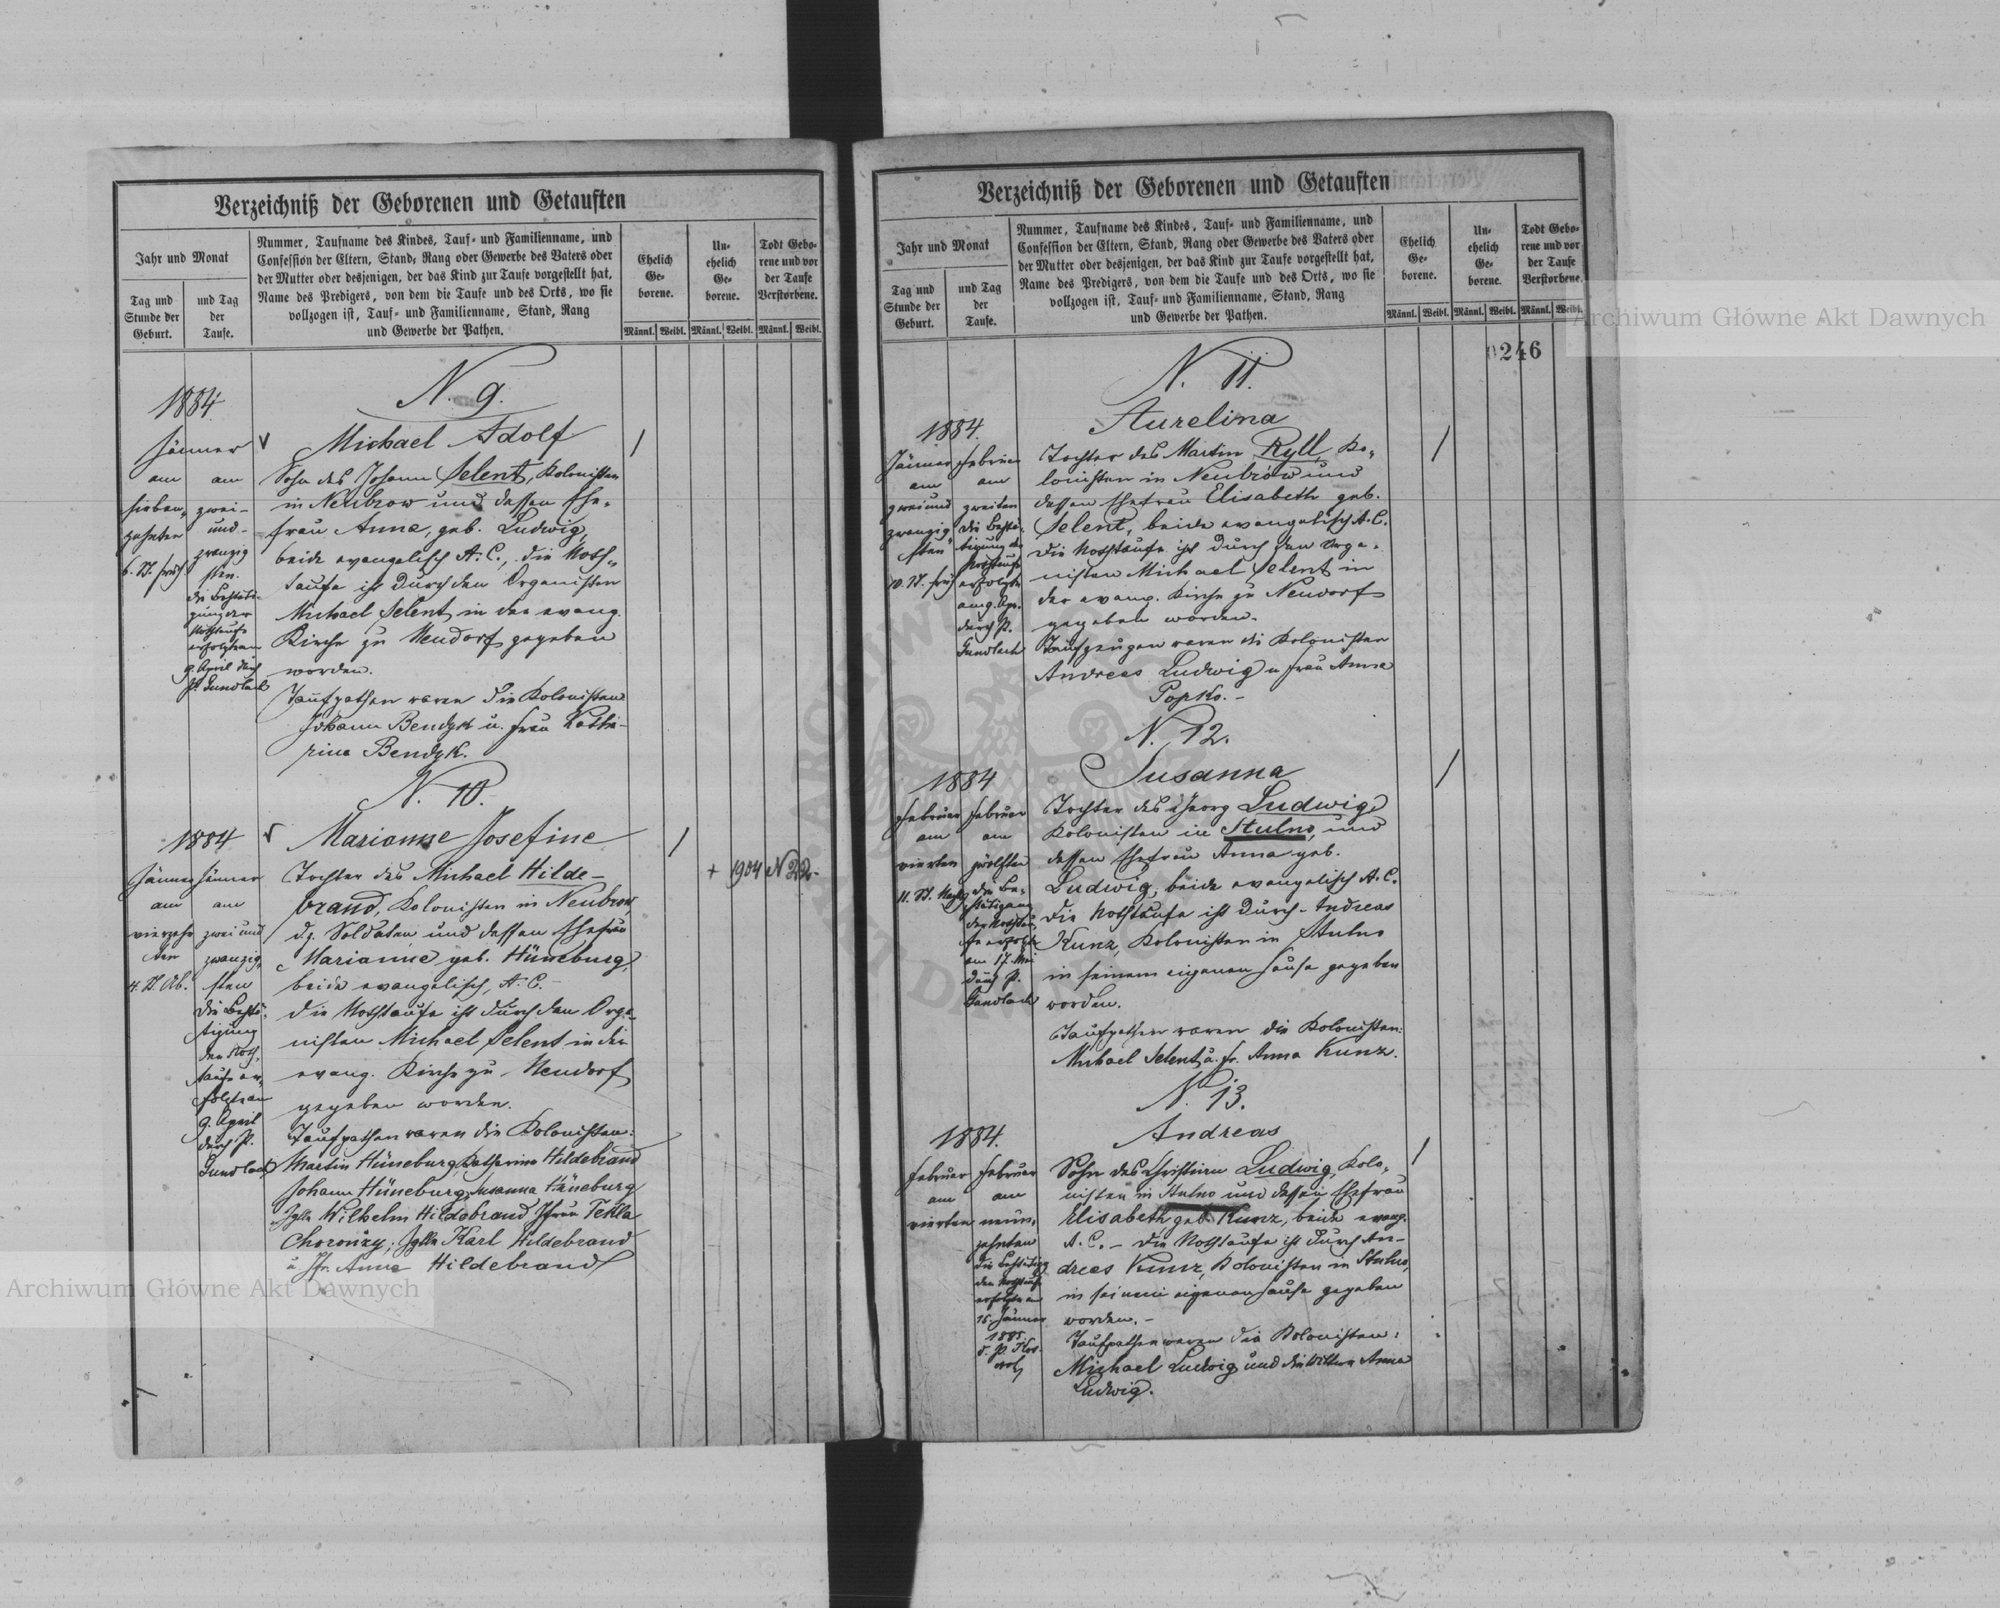 Verzeichniß der Geborenen und Getauften
Jahr und Monat
Tag und
Stunde der
Geburt.
und Tag
der
Taufe.
Nummer, Taufname des Kindes, Tauf- und Familienname, und
Confession der Eltern, Stand, Rang oder Gewerbe des Vaters oder
der Mutter oder desjenigen, der das Kind zur Taufe vorgestellt hat,
Name des Predigers, von dem die Taufe und des Orts, wo sie
vollzogen ist, Tauf- und Familienname, Stand, Rang
und Gewerbe der Pathen.
Ehelich
Ge-
borene.
Un-
ehelich
Ge-
borene.
Todt Gebo-
rene und vor
der Taufe
Verstorbene.
Männl. Weibl. Männl. Weibl. Männl. Weibl.
1884
Jänner
am
sieben-
zehnten
6. St. früh
am
zwei-
und-
zwanzig
sten.
die Bestäti-
gung der
Nothtaufe
erfolgte am
9. April durch
P. Gundlach
N. 9.
Michael Adolf
Sohn des Johann Selent, Kolonisten
in Neubrow und dessen Ehe-
frau Anna, geb. Ludwig,
beide evangelisch A. C., die Noth-
taufe ist durch den Organisten
Michael Selent in der evang.
Kirche zu Neudorf gegeben
worden.
Taufpathen waren die Kolonisten
Johann Bendyk u. Frau Katha-
rina Bendyk.
1884
Jänner
am
vierzehn
ten
4. St. Ab.
Jänner
am
zwei und
zwanzig-
sten
die Bestä-
tigung
der Noth-
taufe er-
folgte am
9. April
durch P.
Gundlach
N. 10.
Marianne Josefine
Tochter des Michael Hilde-
brand, Kolonisten in Neubrow
d. z. Soldaten und dessen Ehefrau
Marianne geb. Hüneburg,
beide evangelisch, A. C. -
die Nothtaufe ist durch den Orga-
nisten Michael Selent in der
evang. Kirche zu Neudorf
gegeben worden.
Taufpathen waren die Kolonisten:
Martin Hüneburg, Katharina Hildebrand
Johann Hüneburg, Susanna Hüneburg
Wilhelm Hildebrand, Tekla
Karl Hildebrand
u. Anna Hildebrand
+ 1904 N 22.
Verzeichniß der Geborenen und Getauften
Jahr und Monat
Tag und
Stunde der
Geburt.
und Tag
der
Taufe.
Nummer, Taufname des Kindes, Tauf- und Familienname, und
Confession der Eltern, Stand, Rang oder Gewerbe des Vaters oder
der Mutter oder desjenigen, der das Kind zur Taufe vorgestellt hat,
Name des Predigers, von dem die Taufe und des Orts, wo sie
vollzogen ist, Tauf- und Familienname, Stand, Rang
und Gewerbe der Pathen.
Ehelich
Ge-
borene.
Un-
ehelich
Ge-
borene.
Todt Gebo-
rene und vor
der Taufe
Verstorbene.
Männl. Weibl. Männl. Weibl. Männl. Weibl.
0246
1884.
Jänner
am
zwei und
zwanzig
sten
10. St. früh
Februar
am
zweiten
die Bestä-
tigung der
Nothtaufe
erfolgte
am 9. Apr.
durch P.
Gundlach
N. 11.
Aurelina
Tochter des Martin Ryll, Ko-
lonisten in Neubrow und
dessen Ehefrau Elisabeth geb.
Selent, beide evangelisch A. C.
die Nothtaufe ist durch den Orga-
nisten Michael Selent in
der evang. Kirche zu Neudorf
gegeben worden.
Taufzeugen waren die Kolonisten
Andreas Ludwig u. Frau Anna
Popko. -
1884
Februar
am
vierten
11. St.
Februar
am
zwölften
die Be-
stätigung
der Nothtau-
fe erfolgte
am 17. Mai
durch P.
Gundlach
N. 12.
Susanna
Tochter des Georg Ludwig,
Kolonisten in Stulno, und
dessen Ehefrau Anna geb.
Ludwig, beide evangelisch A. C.
die Nothtaufe ist durch Andreas
Kunz, Kolonisten in Stulno
in seinem eigenen Hause gegeben
worden.
Taufpathen waren die Kolonisten:
Michael Selent u. Fr. Anna Kunz.
1884.
Februar
am
vierten
Februar
am
neun-
zehnten
die Bestätigg
der Nothtaufe
erfolgte am
16. Jänner
1885.
d. P.
N. 13.
Andreas
Sohn des Christian Ludwig, Kolo-
nisten in Stulno und dessen Ehefrau
Elisabeth geb. Kunz, beide evang.
A. C. - Die Nothtaufe ist durch An-
dreas Kunz, Kolonisten in Stulno,
in seinem eigenen Hause gegeben
worden. -
Taufpathen waren die Kolonisten:
Michael Ludwig und die Anna
Ludwig.
Archiwum Główne Akt Dawnych
Archiwum Główne Akt Dawnych